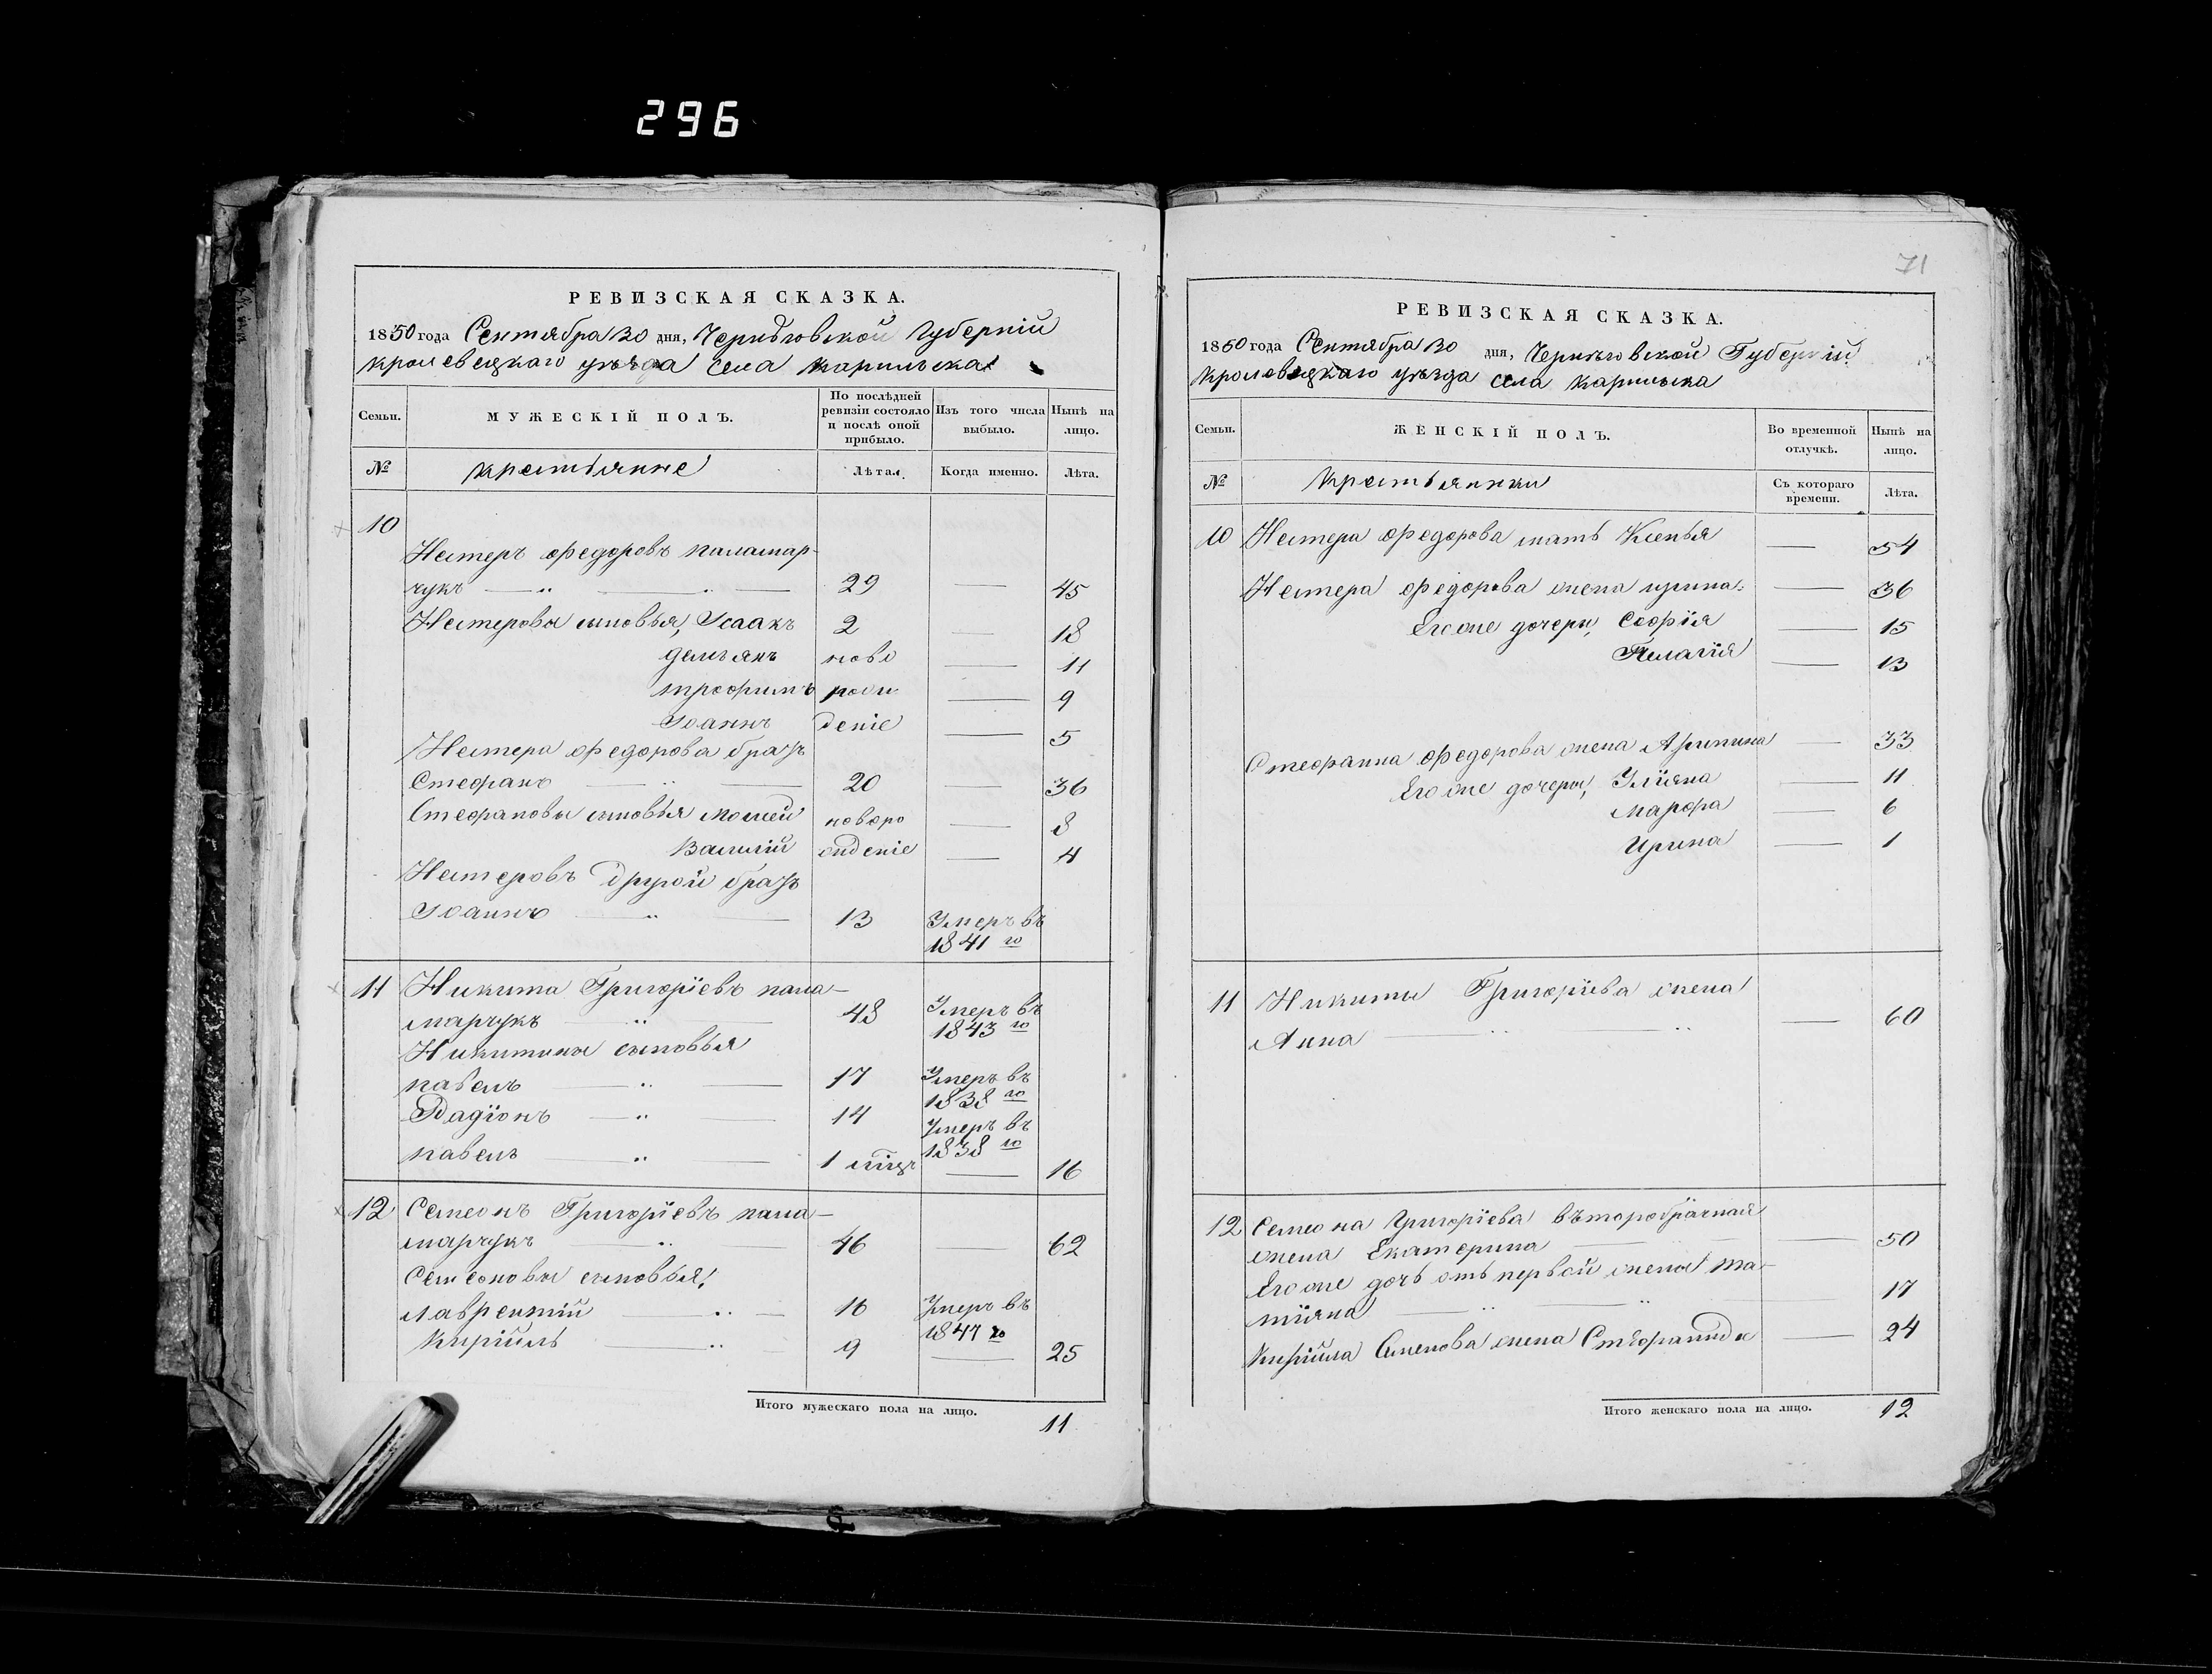 296
РЕВИЗСКАЯ СКАЗКА.
1850 года Сентября 30 дня, Черниговской Губерніи
Кролевецкаго уезда села Карильска
Семьи.
МУЖЕСКІЙ ПОЛЪ.
По послѣдней ревизіи состояло и послѣ оной прибыло.
Изъ того числа выбыло.
Нынѣ на лицо.
№
крестьянне
Лѣта.
Когда именно.
Лѣта.
10
Нестеръ Федоровъ паламар-
чукъ 29 45
Нестеровы сыновья, Исаакъ 2 18
Демьянъ ново 11
трофимъ рож 9
Іоаннъ деніе 5
Нестера Федорова братъ
Стефанъ 20 36
Стефановы сыновья Мосей новоро 8
Василій жденіе 4
Нестеровъ другой братъ
Іоаннъ 13 Умеръ въ
1841 го
11 Никита Григоріевъ пала-
марчукъ 48 Умеръ въ
1843 го
Никитины сыновья
павелъ 17 Умеръ въ
1838 го
Радіонъ 14 Умеръ въ
1838 го
павелъ 1 16
12 Семеонъ Григоріевъ пала-
марчукъ 46 62
Семеоновы сыновья,
Лаврентій 16 Умеръ въ
1847 го
Кирійлъ 9 25
Итого мужескаго пола на лицо. 11
71
РЕВИЗСКАЯ СКАЗКА.
1850 года Сентября 30 дня, Черниговской Губерніи
Кролевецкаго уѣзда села Карильска
Семьи.
ЖЕНСКІЙ ПОЛЪ.
Во временной отлучкѣ.
Нынѣ на лицо.
№
Крестьянки
Съ котораго времени.
Лѣта.
10 Нестера Федорова мать Ксенья 54
Нестера Федорова жена ирина 36
Его же дочери, Софія 15
Пелагія 13
Стефанна Федорова жена Агрипина 33
Его же дочери, Уліяна 11
Марфа 6
Ирина 1
11 Никиты Григоріева жена
Анна 60
12 Семеона Григоріева въторобрачная
жена Екатерина 50
Его же дочь отъ первой жены та-
тіяна 17
Кирійла Семенова жена Стефанида 24
Итого женскаго пола на лицо. 12